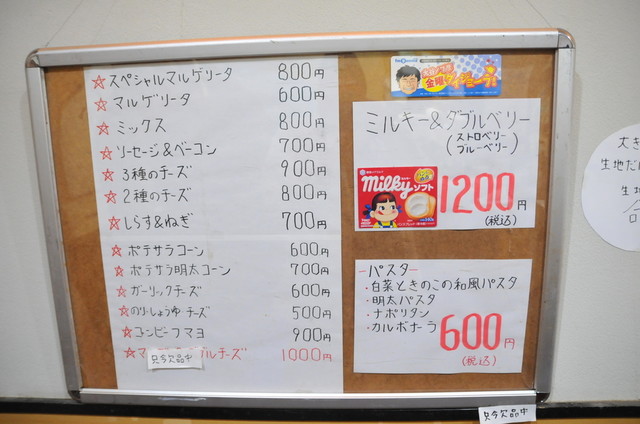 ☆スペシャルマルゲリータ 800円
☆マルゲリータ 600円
☆ミックス 800円
☆ソーセージ&ベーコン 700円
☆3種のチーズ 900円
☆2種のチーズ 800円
☆しらす&ねぎ 700円
☆ポテサラコーン 600円
☆ポテサラ明太コーン 700円
☆ガーリックチーズ 600円
☆のり・しょうゆ・チーズ 500円
☆コンビーフマヨ 900円
☆マ ブルチーズ 1000円
只今欠品中
金曜
ミルキー&ダブルベリー
(ストロベリー
ブルーベリー)
milky ソフト
1200円
(税込)
-パスタ-
・白菜ときのこの和風パスタ
・明太パスタ
・ナポリタン
・カルボナーラ
600円
(税込)
只今欠品中
大き
生地だ
生